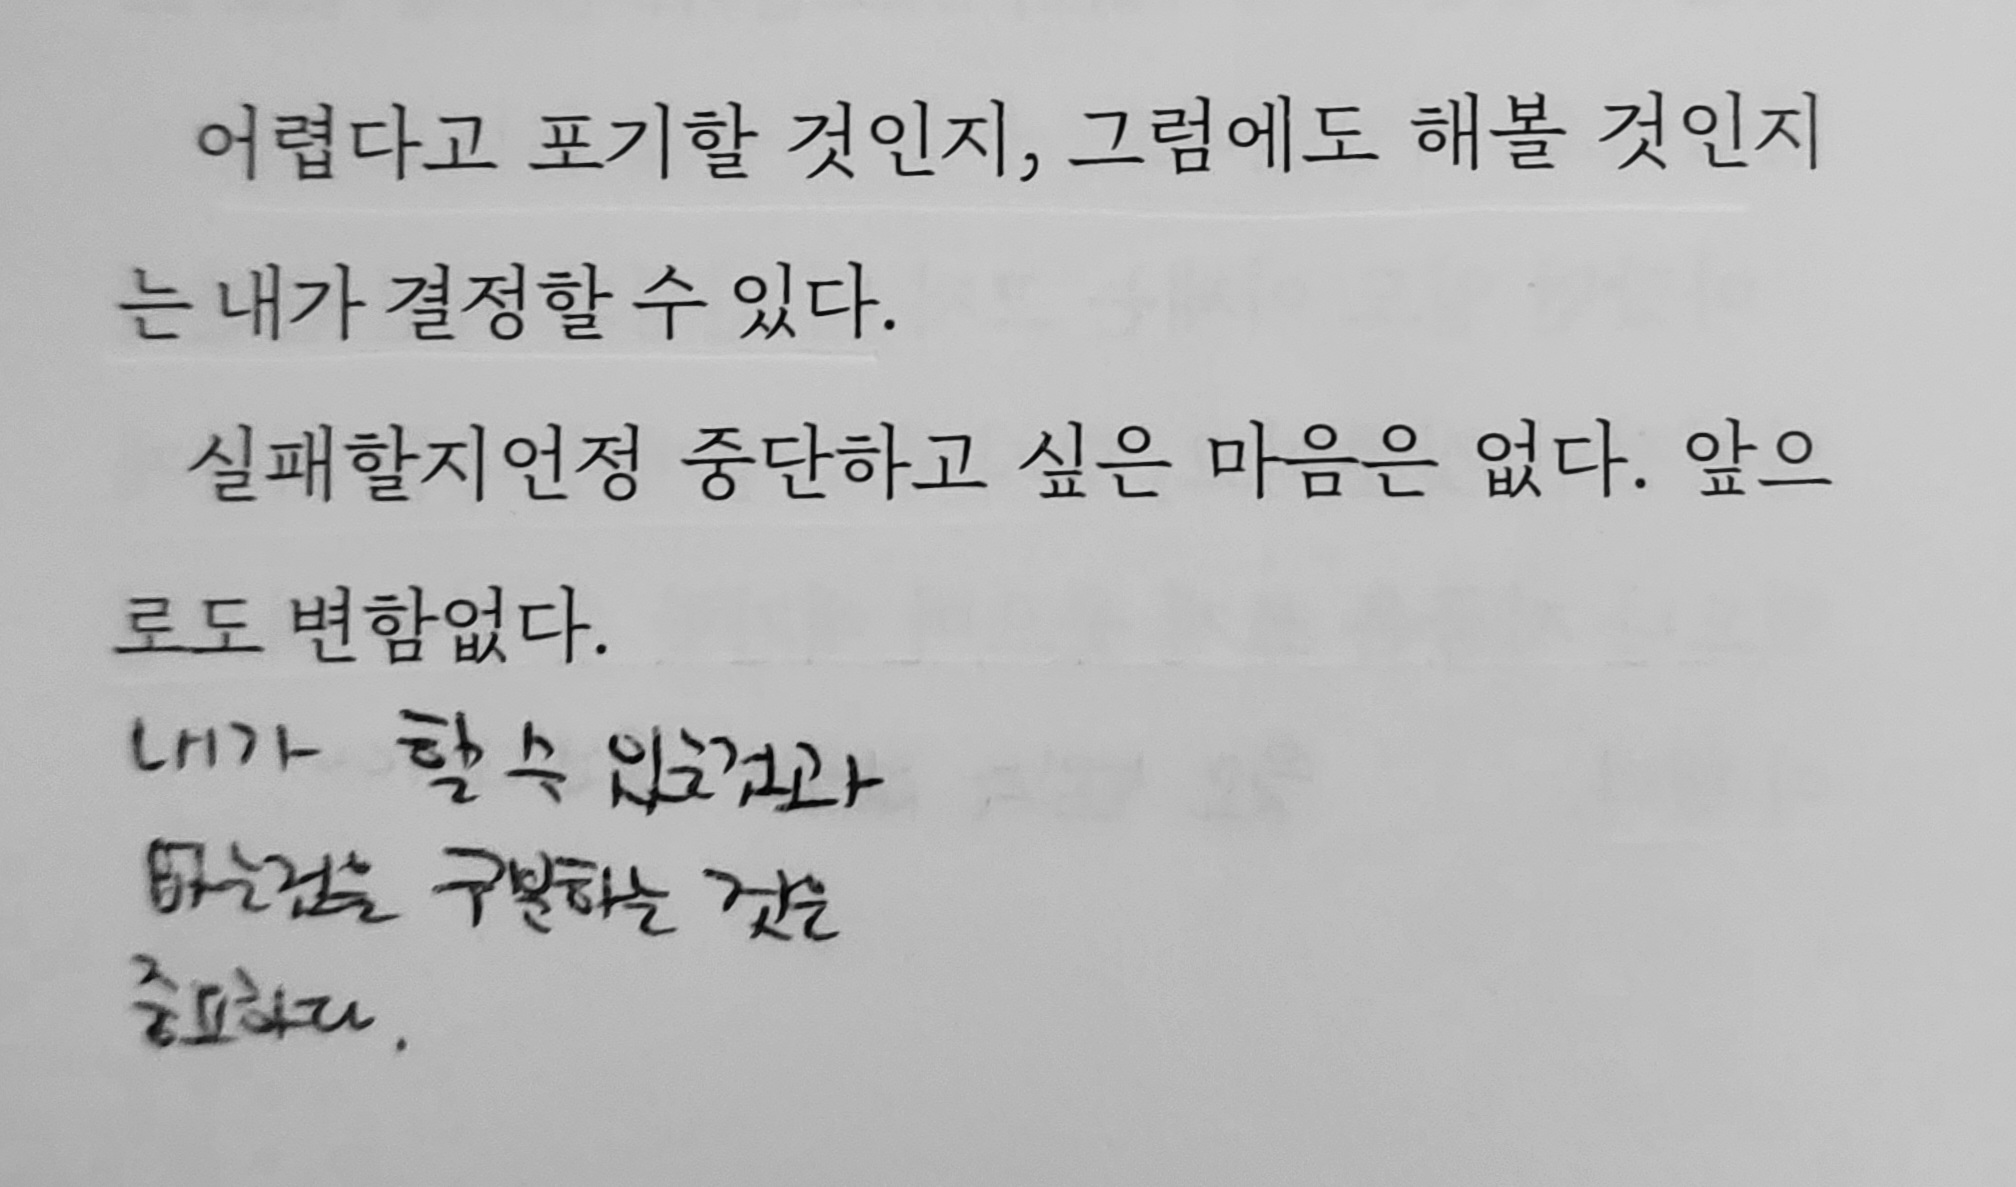 어렵다고 포기할 것인지, 그럼에도 해볼 것인지
는 내가 결정할 수 있다.
실패할지언정 중단하고 싶은 마음은 없다. 앞으
로도 변함없다.
내가 할 수 있는것과
구분하는 것은
중요하다.